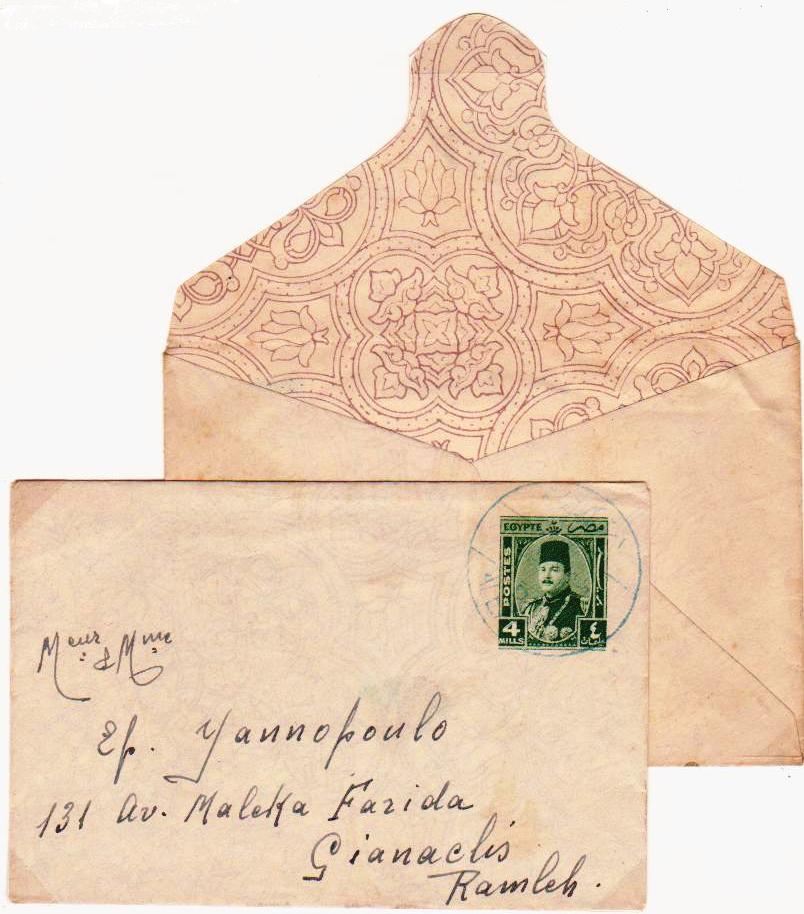 EGYPTE مصر
POSTES
4 ٤
MILLS مليمات
Meur & Mme
Ep. Yannopoulo
131 Av. Maleka Farida
Gianaclis
Ramleh.